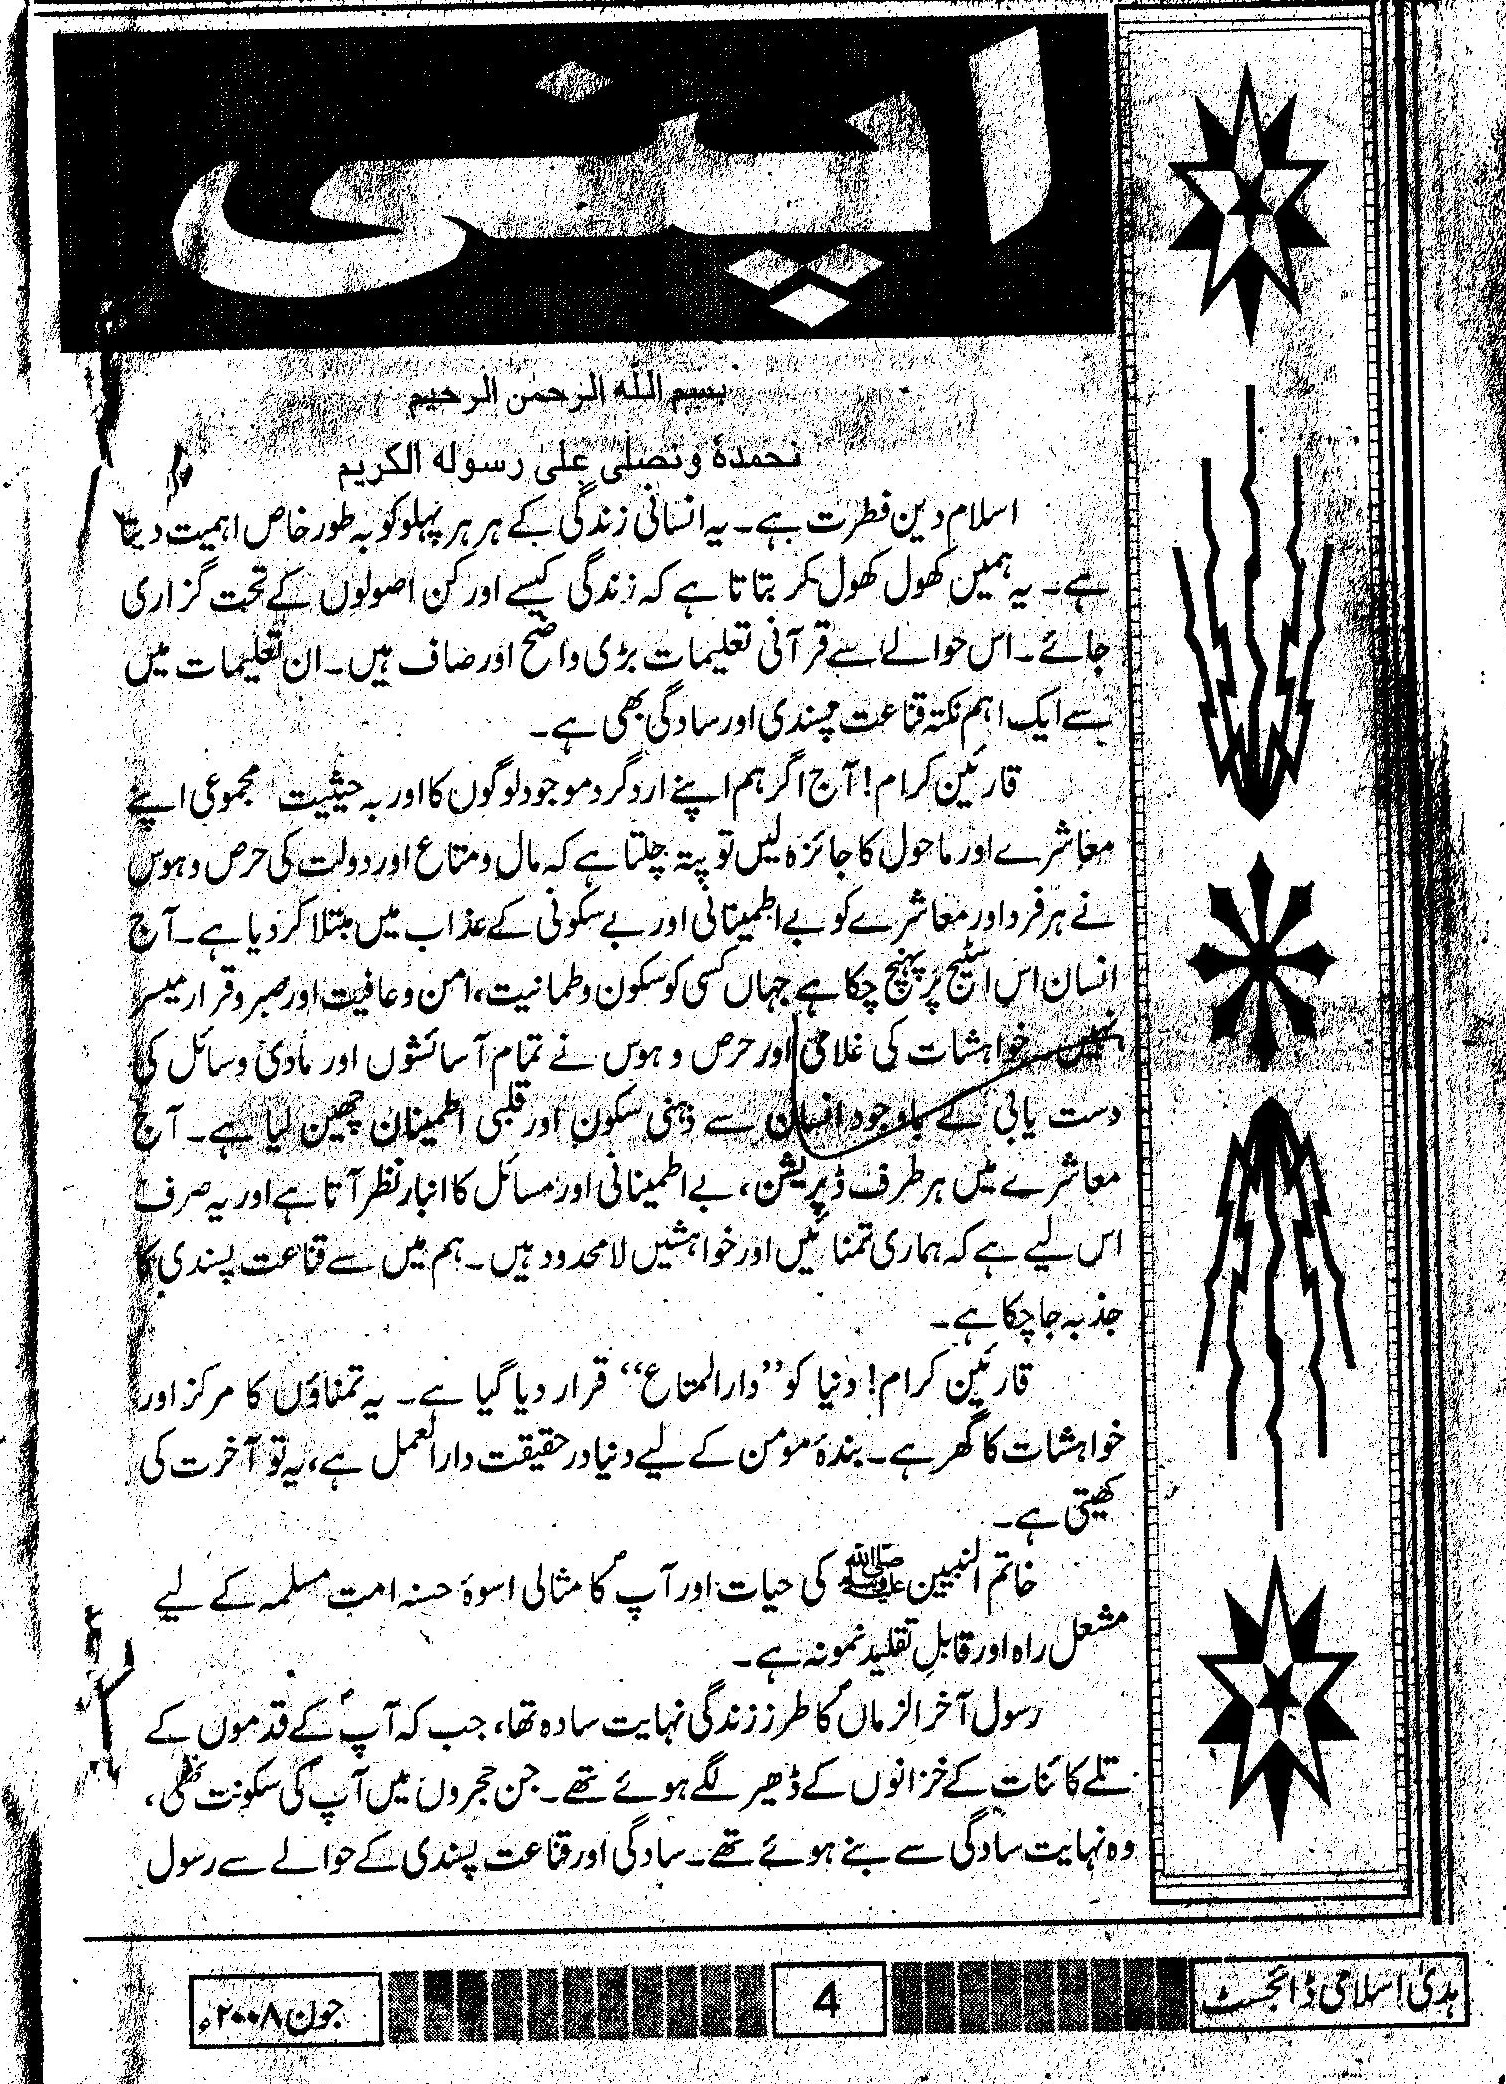 اپنی
بسم اللہ الرحمٰن الرحیم
نحمدہٗ ونصلی علیٰ رسولہ الکریم
اسلام دین فطرت ہے۔ یہ انسانی زندگی کے ہر ہر پہلو کو بہ طور خاص اہمیت دیتا
ہے۔ یہ ہمیں کھول کھول کر بتاتا ہے کہ زندگی کیسے اور کن اصولوں کے تحت گزاری
جائے۔ اس حوالے سے قرآنی تعلیمات بڑی واضح اور صاف ہیں۔ ان تعلیمات میں
سے ایک اہم نکتہ قناعت پسندی اور سادگی بھی ہے۔
قارئین کرام! آج اگر ہم اپنے اردگرد موجود لوگوں کا اور بہ حیثیت مجموعی اپنے
معاشرے اور ماحول کا جائزہ لیں تو پتہ چلتا ہے کہ مال و متاع اور دولت کی حرص و ہوس
نے ہر فرد اور معاشرے کو بے اطمینانی اور بے سکونی کے عذاب میں مبتلا کر دیا ہے۔ آج
انسان اس اسٹیج پر پہنچ چکا ہے جہاں کسی کو سکون و طمانیت، امن و عافیت اور صبر و قرار میسر
نہیں۔ خواہشات کی غلامی اور حرص و ہوس نے تمام آسائشوں اور مادی وسائل کی
دست یابی کے باوجود انسان سے ذہنی سکون اور قلبی اطمینان چھین لیا ہے۔ آج
معاشرے میں ہر طرف ڈپریشن، بے اطمینانی اور مسائل کا انبار نظر آتا ہے اور یہ صرف
اس لیے ہے کہ ہماری تمنائیں اور خواہشیں لامحدود ہیں۔ ہم میں سے قناعت پسندی کا
جذبہ جا چکا ہے۔
قارئین کرام! دنیا کو ”دارالمتاع“ قرار دیا گیا ہے۔ یہ تمناؤں کا مرکز اور
خواہشات کا گھر ہے۔ بندۂ مومن کے لیے دنیا درحقیقت دارالعمل ہے، یہ تو آخرت کی
کھیتی ہے۔
خاتم النبیین ﷺ کی حیات اور آپؐ کا مثالی اسوۂ حسنہ امت مسلمہ کے لیے
مشعل راہ اور قابلِ تقلید نمونہ ہے۔
رسول آخر الزماںؐ کا طرز زندگی نہایت سادہ تھا، جب کہ آپؐ کے قدموں کے
تلے کائنات کے خزانوں کے ڈھیر لگے ہوئے تھے۔ جن حجروں میں آپؐ کی سکونت تھی،
وہ نہایت سادگی سے بنے ہوئے تھے۔ سادگی اور قناعت پسندی کے حوالے سے رسول
ہدیٰ اسلامی ڈائجسٹ
4
جون ۲۰۰۸ء